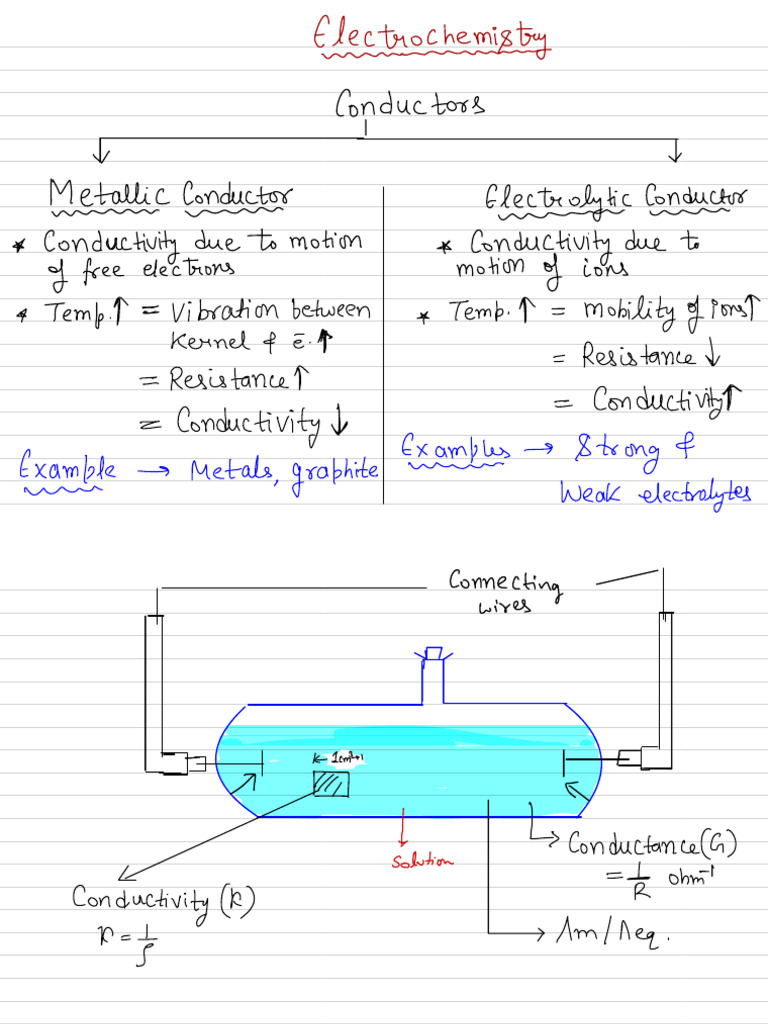 Electrochemistry
Conductors
Metallic Conductor
* Conductivity due to motion
of free electrons
* Temp.↑ = Vibration between
Kernel & ē.↑
= Resistance↑
= Conductivity↓
Example → Metals, graphite
Electrolytic Conductor
* Conductivity due to
motion of ions
* Temp.↑ = mobility of ions↑
= Resistance↓
= Conductivity↑
Examples → Strong &
Weak electrolytes
Connecting
wires
1cm³
Solution
Conductance(G)
= 1/R ohm⁻¹
Conductivity(κ)
κ = 1/ρ
Λm/Λeq.